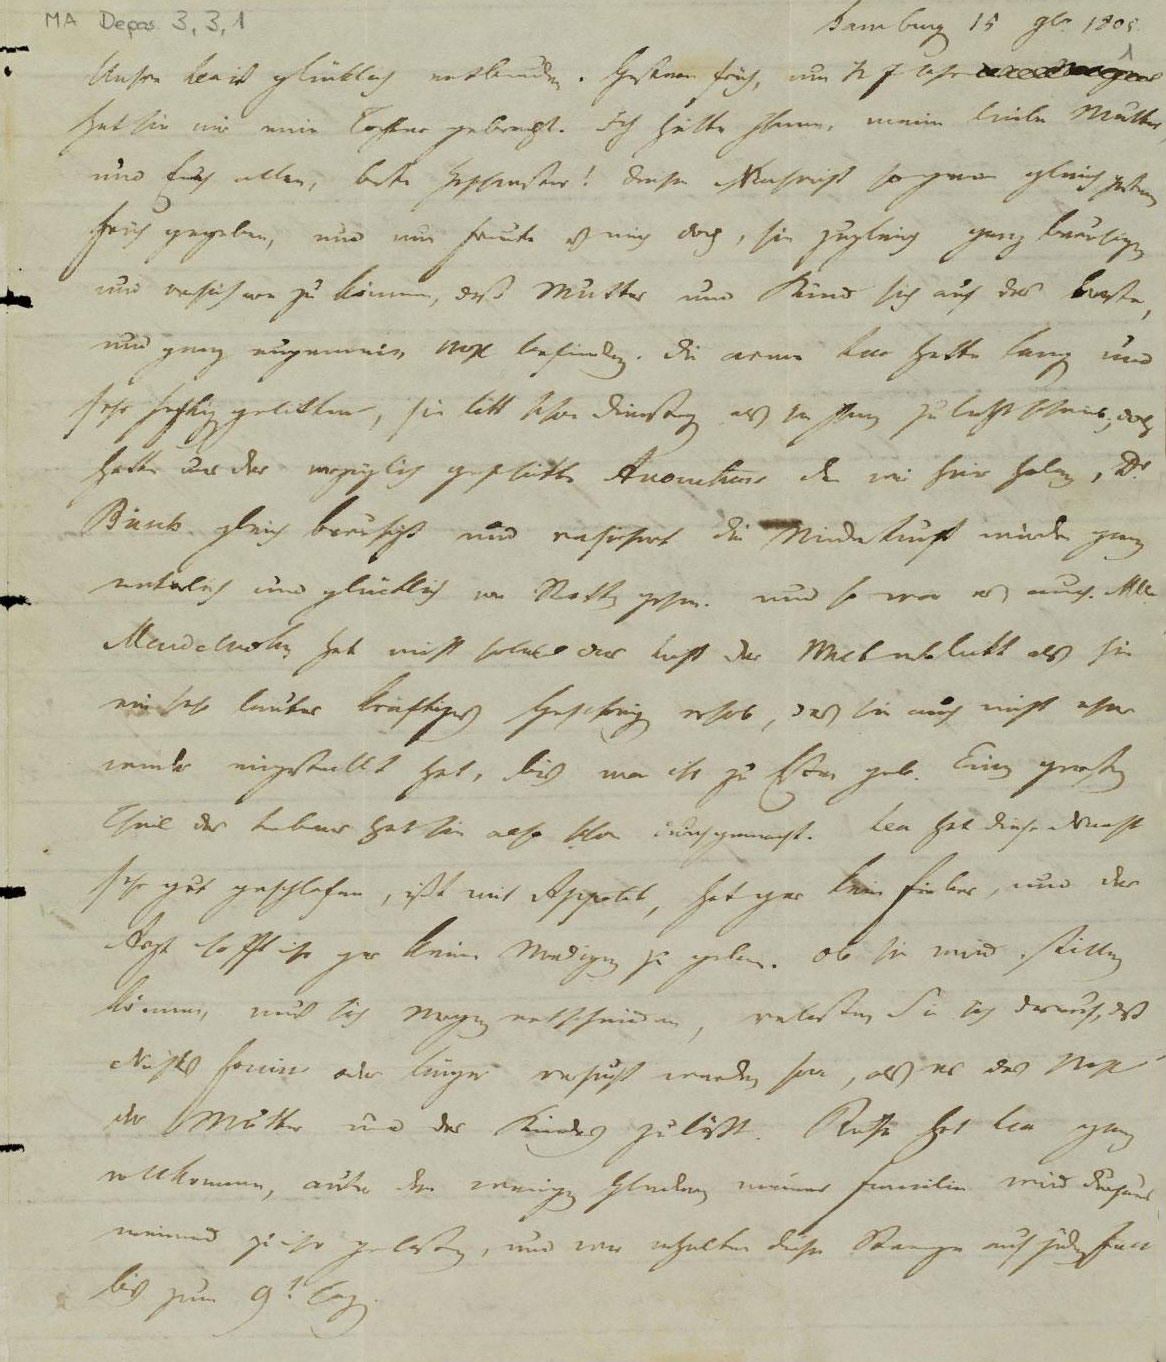 MA Depos. 3, 3, 1
Hamburg 15 9br 1805
Unsre Lea ist glücklich entbunden. Gestern früh, um ½ 7 Uhr
hat sie mir eine Tochter gebracht. Ich hätte Ihnen, meine liebe Mutter,
und Euch allen, beste Geschwister! diese Nachricht so gern gleich gestern
früh gegeben, und nun freute es mich doch, Sie zugleich ganz beruhigen
und versichern zu können, daß Mutter und Kind sich auf das beste,
und ganz ungemein wohl befinden. Die arme Lea hatte lang und
sehr heftig gelitten, sie litt schon Dienstag als sie Ihnen zuletzt schrieb, doch
hatte uns der vorzüglich geschickte Accoucheur den wir hier haben, Dr
gleich beruhigt und versichert die Niederkunft würde ganz
natürlich und glücklich von Statten gehen. und so war es auch. Mlle
Mendelssohn hat nicht sobald die Luft der Welt erblickt als sie
ein sehr lautes kräftiges Geschrey erhob, das sie auch nicht eher
wieder eingestellt hat, bis man ihr zu Essen gab. Einen großen
Theil des Lebens hat sie also schon durchgemacht. Lea hat diese Nacht
sehr gut geschlafen, ißt mit Appetit, hat gar kein Fieber, und der
Arzt hofft ihr gar keine Medizin zu geben. Ob sie wird stillen
können, muß sich morgen entscheiden, verlassen Sie sich darauf, daß
Nichts früher oder länger versucht werden soll, als es das Wohl
der Mutter und des Kindes zuläßt. Ruhe hat Lea ganz
vollkommen, außer den wenigen Gliedern meiner Familie wird durchaus
niemand zu ihr gelassen, und wir erhalten diese Strenge auf jeden Fall
bis zum 9t. Tag.